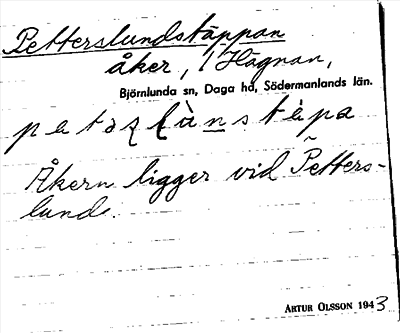 Petterslundstäppan
åker, i Hagnan,
Björnlunda sn, Daga hd, Södermanlands län.
Åkern ligger vid Petters-
lund.
ARTUR OLSSON 1943